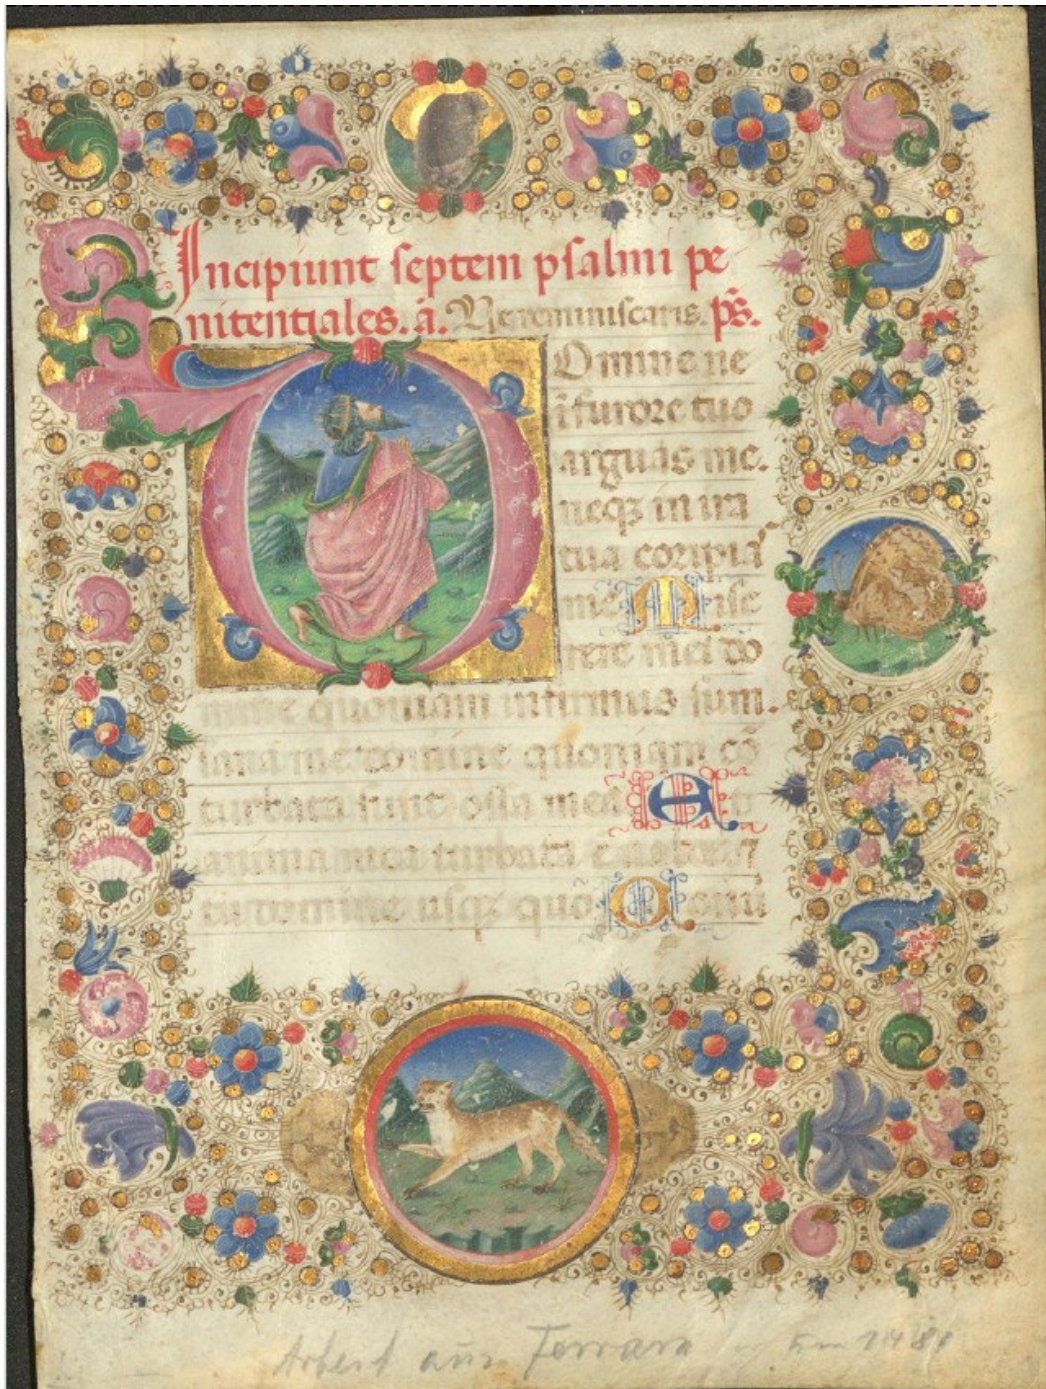 Incipiunt septem psalmi pe
nitentiales. a. Ne reminiscaris. ps̄.
Domine ne
ī furore tuo
arguas me.
neqꝫ in ira
tua coripia᷑
mē Mise
rere mei do
mine quoniam infirmus sum.
sana me domine quoniam cō
turbata sunt ossa mea Et
anima mea turbata est
tu domine usqꝫ quo
Arbeit aus Ferrara